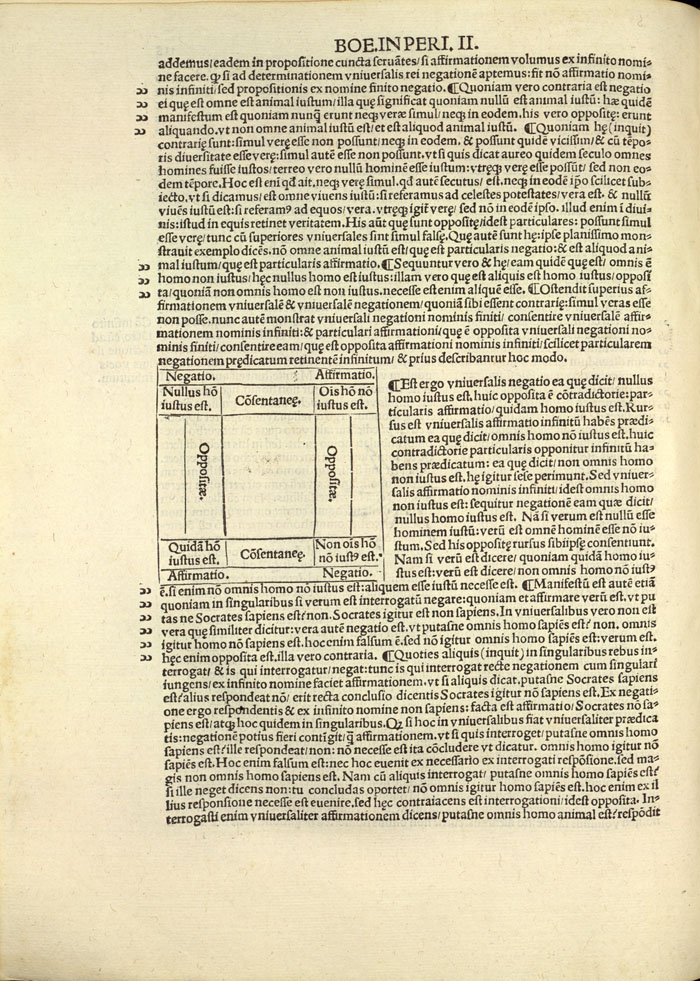 BOE. IN PERI. II.
addemus/eadem in propositione cuncta seruātes/si affirmationem volumus ex infinito nomi-
ne facere. ꝙ si ad determinationem vniuersalis rei negationē aptemus: fit nō affirmatio nomi-
nis infiniti/sed propositionis ex nomine finito negatio. ¶Quoniam vero contraria est negatio
ei quę est omne est animal iustum/illa quę significat quoniam nullū est animal iustū: hæ quidē
manifestum est quoniam nunꝗ̄ erunt neqꝫ veræ simul/neqꝫ in eodem. his vero oppositę: erunt
aliquando. vt non omne animal iustū est/et est aliquod animal iustū. ¶Quoniam hę (inquit)
contrarię sunt: simul verę esse non possunt/neqꝫ in eodem. & possunt quidē vicissim/& cū tēpo-
ris diuersitate esse verę: simul autē esse non possunt. vt si quis dicat aureo quidem seculo omnes
homines fuisse iustos/terreo vero nullū hominē esse iustum: vtręqꝫ verę esse possūt/sed non eo-
dem tēpore. Hoc est eni qđ ait. neqꝫ verę simul. qđ autē secutus/est. neqꝫ in eodē ip̄o scilicet sub-
iecto. vt si dicamus/est omne viuens iustū: si referamus ad celestes potestates/vera est. & nullū
viuēs iustū est: si referamꝰ ad equos/vera. vtręqꝫ igit̄ verę/sed nō in eodē ipso. illud enim ī diui-
nis: istud in equis retinet veritatem. His aūt quę sunt oppositę/idest particulares: possunt simul
esse verę/tunc cū superiores vniuersales sint simul falsę. Quę autē sunt hę: ipse planissimo mon-
strauit exemplo dicēs. nō omne animal iustū est/quę est particularis negatio: & est aliquod ani-
mal iustum/quę est particularis affirmatio. ¶Sequuntur vero & hę/eam quidē quę est/omnis ē
homo non iustus/hęc nullus homo est iustus: illam vero quę est aliquis est homo iustus/opposi
ta/quoniā non omnis homo est non iustus. necesse est enim aliquē esse. ¶Ostendit superius af-
firmationem vniuersalē & vniuersalē negationem/quoniā sibi essent contrarię: simul veras esse
non posse. nunc autē monstrat vniuersali negationi nominis finiti/consentire vniuersalē affir-
mationem nominis infiniti: & particulari affirmationi/quę ē opposita vniuersali negationi no-
minis finiti/consentire eam/quę est opposita affirmationi nominis infiniti/scilicet particularem
negationem prędicatum retinentē infinitum/& prius describantur hoc modo.
Negatio. Affirmatio.
Nullus hō iustus est. Cōsentaneę. Oīs hō nō iustus est.
Oppositæ. Oppositæ.
Quidā hō iustus est. Cōsentaneę. Non oīs hō nō iustꝰ est.
Affirmatio. Negatio.
¶Est ergo vniuersalis negatio ea quę dicit/nullus
homo iustus est. huic opposita ē cōtradictorie: par-
ticularis affirmatio/quidam homo iustus est. Rur-
sus est vniuersalis affirmatio infinitū habēs prædi-
catum ea quę dicit/omnis homo nō iustus est. huic
contradictorie particularis opponitur infinitū ha-
bens prædicatum: ea quę dicit/non omnis homo
non iustus est. hę igitur sese perimunt. Sed vniuer-
salis affirmatio nominis infiniti/idest omnis homo
non iustus est: sequitur negationē eam quæ dicit/
nullus homo iustus est. Nā si verum est nullū esse
hominem iustū: verū est omnē hominē esse nō iu-
stum. Sed his oppositę rursus sibiipsę consentiunt.
Nam si verū est dicere/quoniam quidā homo iu-
stus est: verū est dicere/non omnis homo nō iustꝰ
ē. si enim nō omnis homo nō iustus est: aliquem esse iustū necesse est. ¶Manifestū est autē etiā
quoniam in singularibus si verum est interrogatū negare: quoniam et affirmare verū est. vt pu
tas ne Socrates sapiens est? non. Socrates igitur est non sapiens. In vniuersalibus vero non est
vera quę similiter dicitur: vera autē negatio est. vt putasne omnis homo sapiēs est? non. omnis
igitur homo nō sapiens est. hoc enim falsum ē. sed nō igitur omnis homo sapiēs est: verum est.
hęc enim opposita est. illa vero contraria. ¶Quoties aliquis (inquit) in singularibus rebus in-
terrogat/& is qui interrogatur/negat: tunc is qui interrogat recte negationem cum singulari
iungens/ex infinito nomine faciet affirmationem. vt si aliquis dicat. putasne Socrates sapiens
est? alius respondeat nō/erit recta conclusio dicentis Socrates igitur nō sapiens est. Ex negati-
one ergo respondentis & ex infinito nomine non sapiens: facta est affirmatio/Socrates nō sa-
piens est/atqꝫ hoc quidem in singularibus. Qꝫ si hoc in vniuersalibus fiat vniuersaliter prædica
tis: negationē potius fieri contīgit/ꝗ̄ affirmationem. vt si quis interroget/putasne omnis homo
sapiens est? ille respondeat/non: nō necesse est ita cōcludere vt dicatur. omnis homo igitur nō
sapiēs est. Hoc enim falsum est: nec hoc euenit ex necessario ex interrogati respōsione. sed ma-
gis non omnis homo sapiens est. Nam cū aliquis interrogat/putasne omnis homo sapiēs est?
si ille neget dicens non: tu concludas oportet/nō omnis igitur homo sapiēs est. hoc enim ex il
lius responsione necesse est euenire. sed hęc contraiacens est interrogationi/idest opposita. In-
terrogasti enim vniuersaliter affirmationem dicens/putasne omnis homo animal est? respōdit